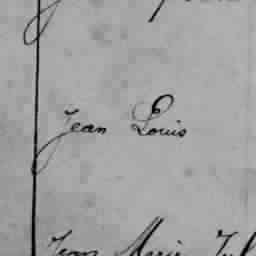 Jean Louis
Jean Marie Jul